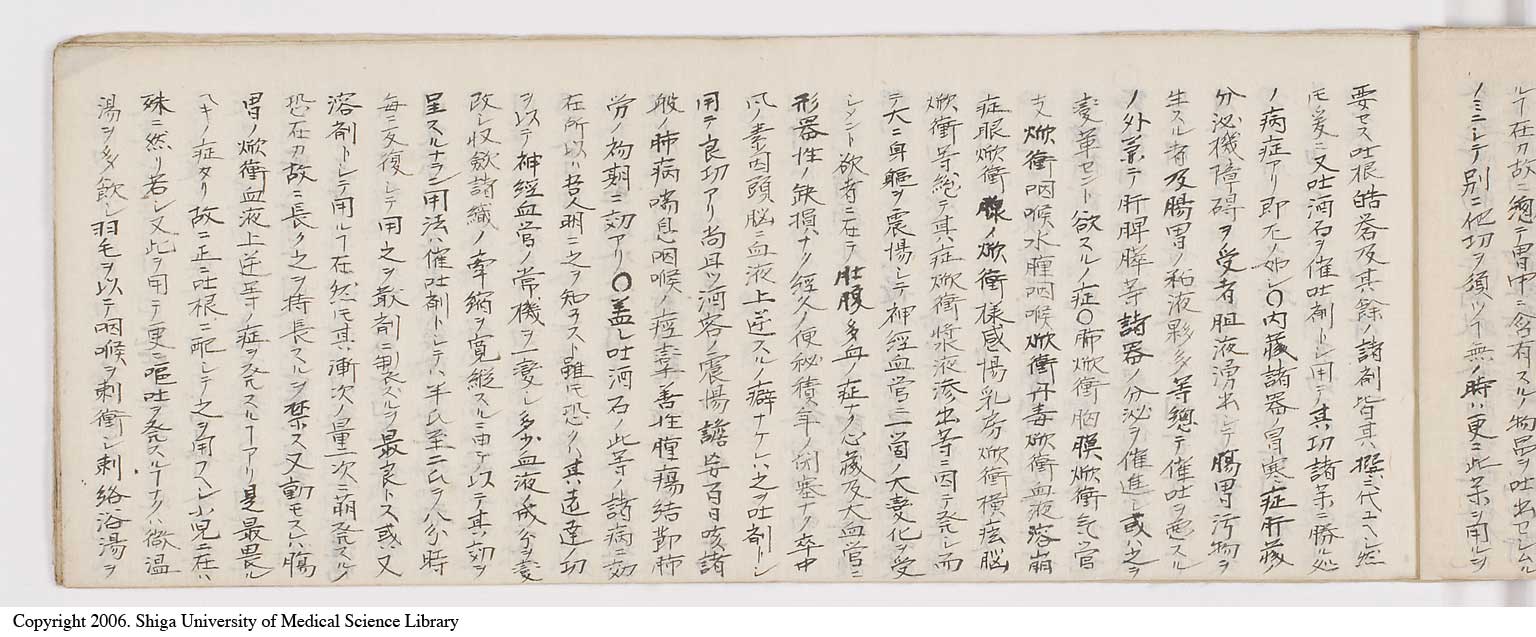 ルヿ在リ故ニ總テ胃中ニ含有スルノ物品ヲ吐出セシムル
ノミニシテ別ニ他切ヲ須ツヿ無ノ時ハ更ニ此茉ヲ用ルヲ
要セス吐根皓礬及其餘ノ諸剤皆其ハ撰ニ代ユヘシ然
モ爰ニ又吐酒石ヲ催吐剤トシ用テ其切諸茉ニ勝ル処
ノ病症アリ即左ノ如シ〇内蔵諸器ノ冒寒症肝蔵
分泌機障碍ヲ受者胆液湧出シテ腸胃汚物ヲ
生スル者及腸胃ノ粘液夥多等總テ催吐ヲ要スル
ノ外兼テ肝脾膵等諸器ノ分泌ヲ催進シ或ハ之ヲ
変革セント欲スルノ症〇肺焮衝胸膜焮衝気管
支焮衝咽喉水腫咽喉焮衝丹毒焮衝血液溶崩
症眼焮衝腺ノ焮衝様感傷乳房焮衝横痃脳
焮衝等総テ其ハ症焮衝漿液滲出等ニ因テ発シ而
テ大ニ身軀ヲ震慯シテ神経血管ニ一箇ノ大変化ヲ受
シメント欲者ニ在テ肚腹多血ノ症ナク心蔵及大血管ニ
形器性ノ缺損ナク経久ノ便秘積年ノ閉塞ナク卒中
風ノ素因頭脳ニ血液上逆スルノ癖ナケレハ之ヲ吐剤トシ
用テ良切アリ尚且ツ酒客ノ震慯譫妄百日咳諸
般ノ肺病喘息咽喉ノ痙挛善性腫瘍結節肺
労ノ初期ニ効アリ〇盖シ吐酒石ノ此等ノ諸病ニ効
在所以ハ昔人明ニ之ヲ知ラスト雖モ恐クハ其遠達ノ切
ヲ以テ神経血管ノ常機ヲ一変シ多少血液成分ヲ変
改シ收歛諸織ノ牽縮ヲ寛縦スルニ由テ以テ其切ヲ
呈スルナラン〇用法ハ催吐剤トシテハ半氏至二氏ヲ八分時
毎ニ反復シテ用之ヲ散剤ニ製スルヲ最良トス或ハ又
溶剤トシテ用ルヿ在然モ其ハ漸次ノ量一次ニ萌発スルノ
恐在カ故ニ長ク之ヲ持長スルヲ禁ス又動モスレハ腸
胃ノ焮衝血液上逆等ノ症ヲ発スルヿアリ是最畏ル
ヘキノ症タリ故ニ正ニ吐根ニ配シテ之ヲ用フヘシ小児ニ在ハ
殊ニ然リ若シ又此ヲ用テ更ニ嘔吐ヲ発スルヿナクハ微温
湯ヲ多飲シ羽毛ヲ以テ咽喉ヲ刺衝シ刺絡浴湯ヲ
Copyright 2006. Shiga University of Medical Science Library